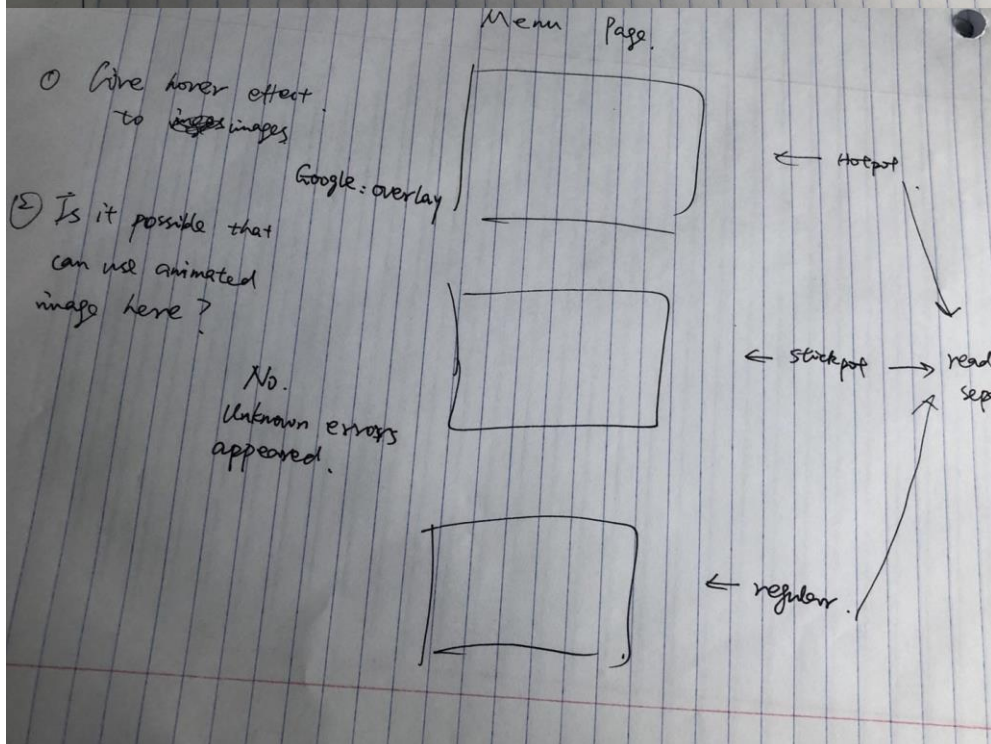 Menu Page.
① Give hover effect
to images
Google: overlay
② Is it possible that
can use animated
image here?
No.
Unknown errors
appeared.
← Hotpot
← Stickpot → read
sep
← regular.